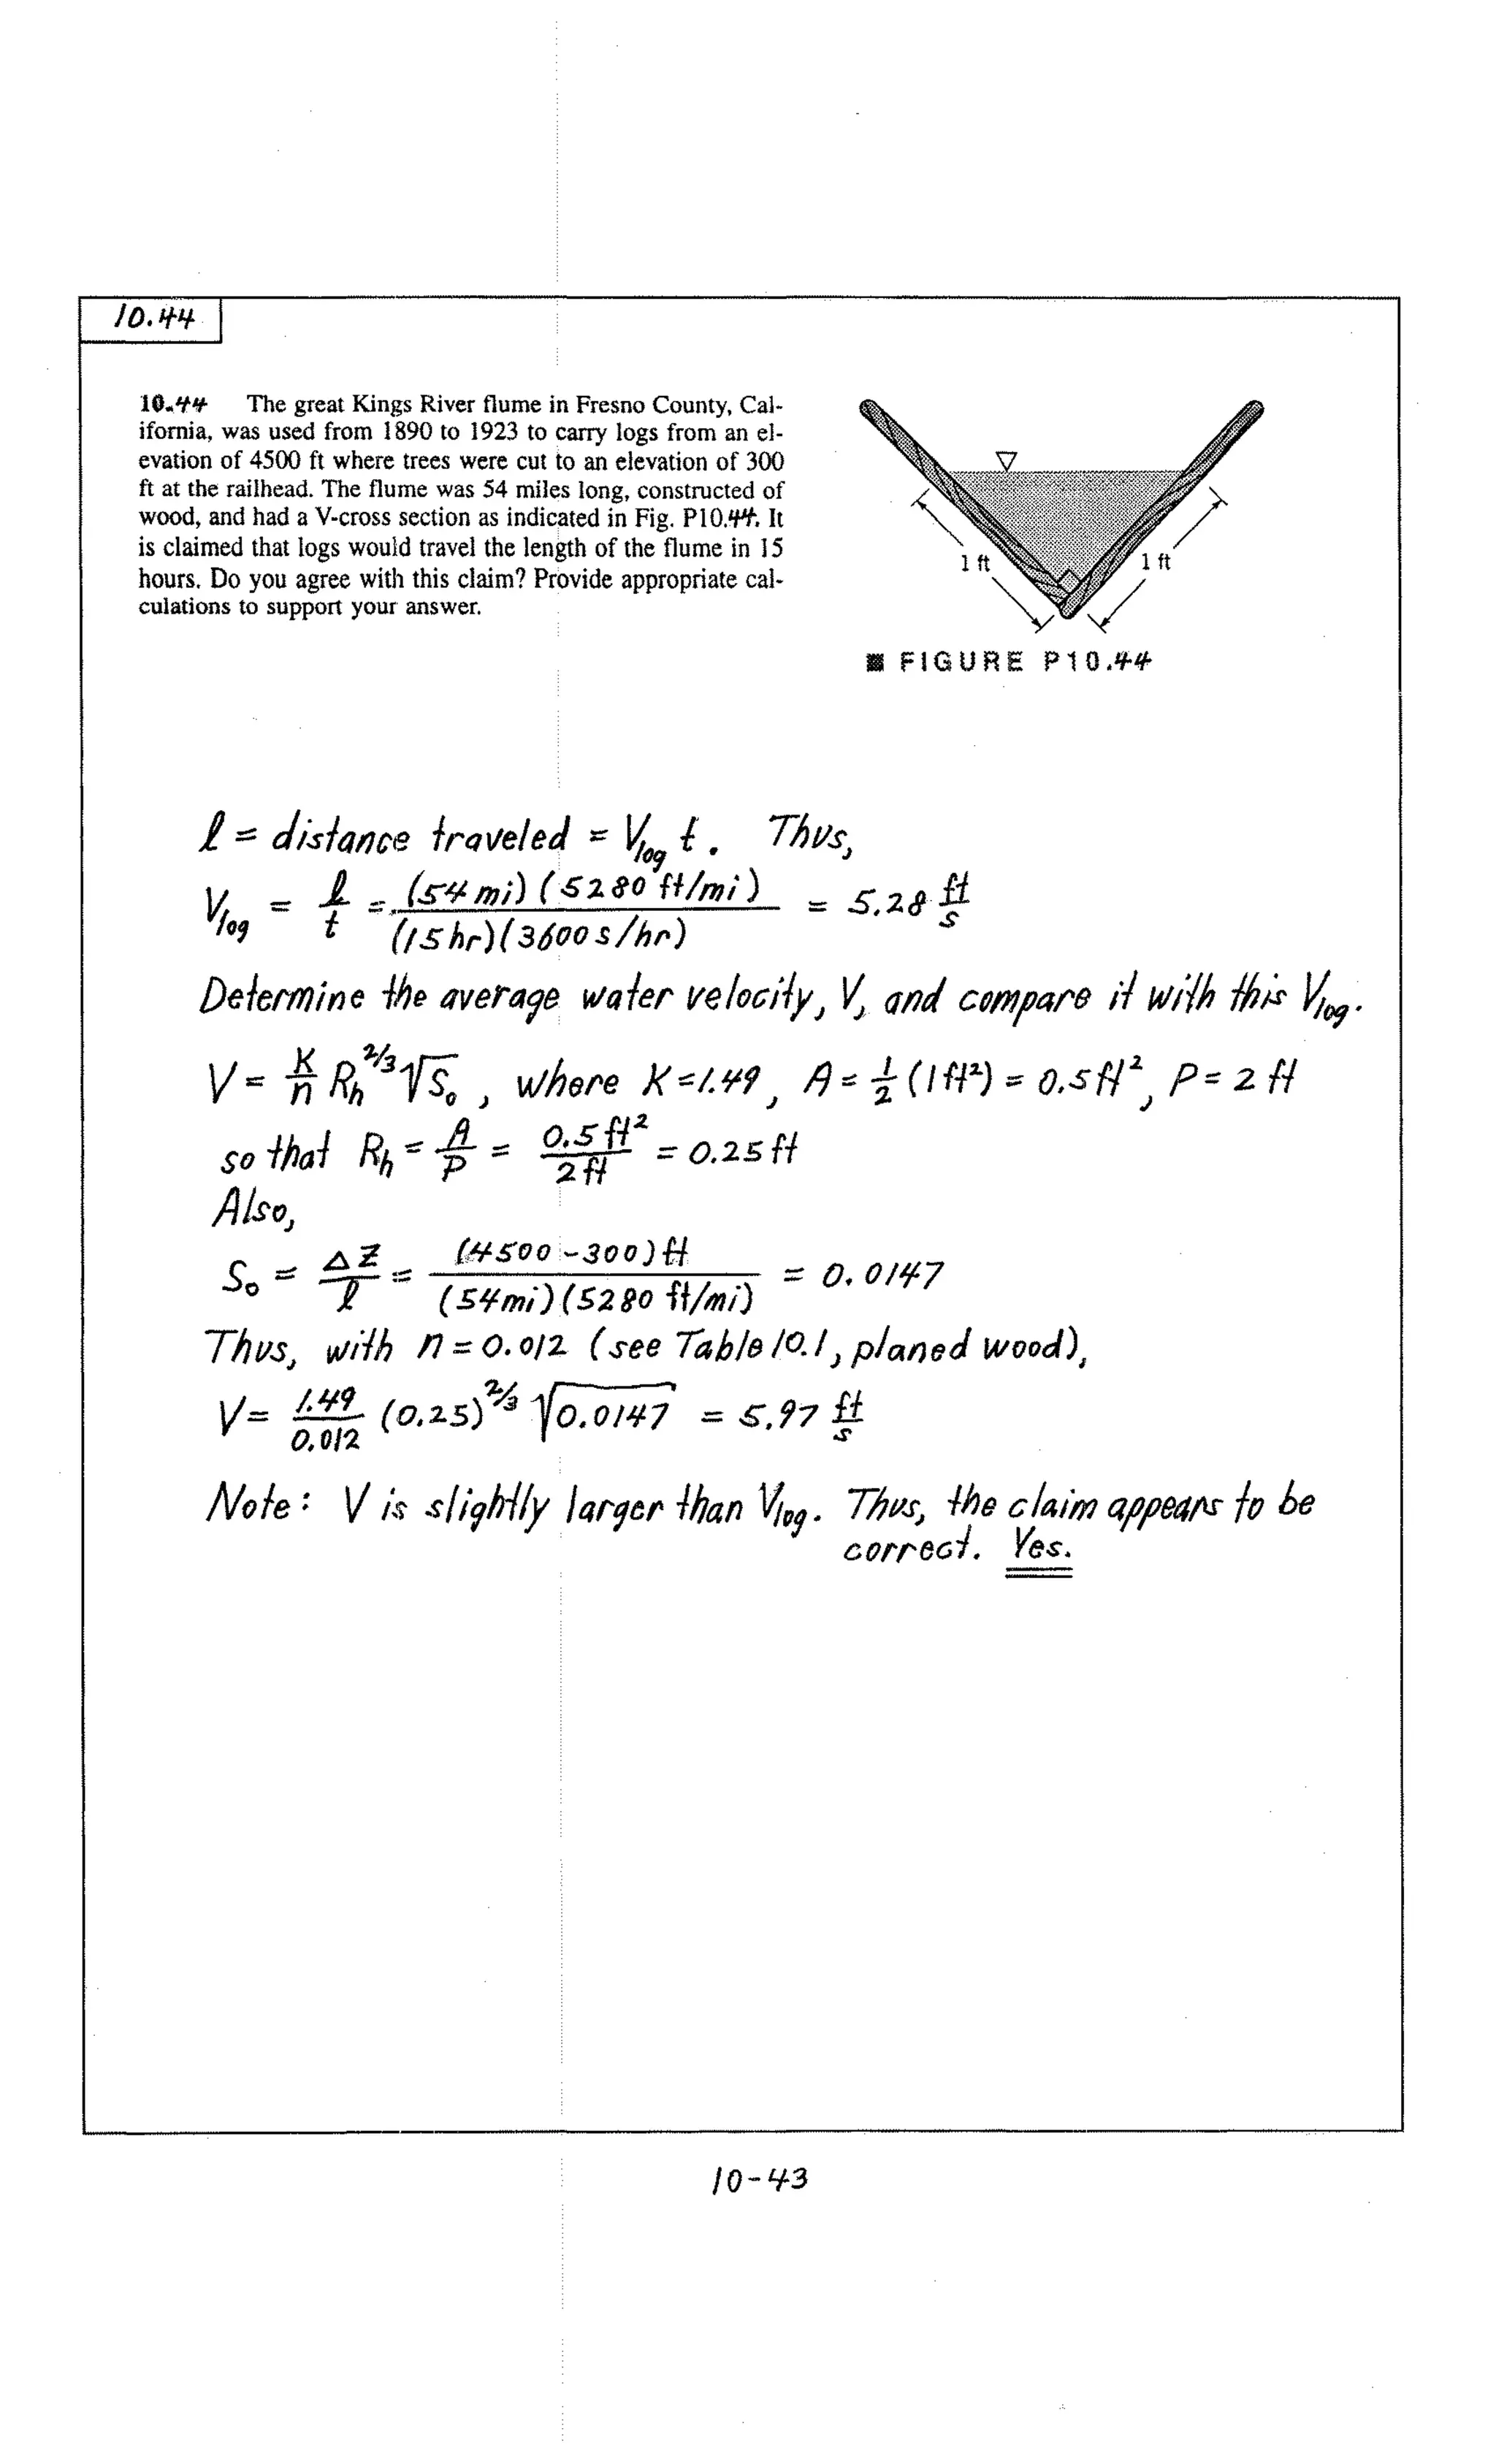 10.44
10.44 The great Kings River flume in Fresno County, Cal-
ifornia, was used from 1890 to 1923 to carry logs from an el-
evation of 4500 ft where trees were cut to an elevation of 300
ft at the railhead. The flume was 54 miles long, constructed of
wood, and had a V-cross section as indicated in Fig. P10.44. It
is claimed that logs would travel the length of the flume in 15
hours. Do you agree with this claim? Provide appropriate cal-
culations to support your answer.
1 ft 1 ft
■ FIGURE P10.44
ℓ = distance traveled = V_log t. Thus,
V_log = ℓ/t = (54 mi)(5280 ft/mi)/(15 hr)(3600 s/hr) = 5.28 ft/s
Determine the average water velocity, V, and compare it with this V_log.
V = K/n R_h^2/3 √S_o , where K = 1.49, A = 1/2 (1 ft²) = 0.5 ft², P = 2 ft
so that R_h = A/P = 0.5 ft²/2 ft = 0.25 ft
Also,
S_o = ΔZ/ℓ = (4500-300) ft/(54mi)(5280 ft/mi) = 0.0147
Thus, with n = 0.012 (see Table 10.1, planed wood),
V = 1.49/0.012 (0.25)^2/3 √0.0147 = 5.97 ft/s
Note: V is slightly larger than V_log. Thus, the claim appears to be
correct. Yes.
10-43